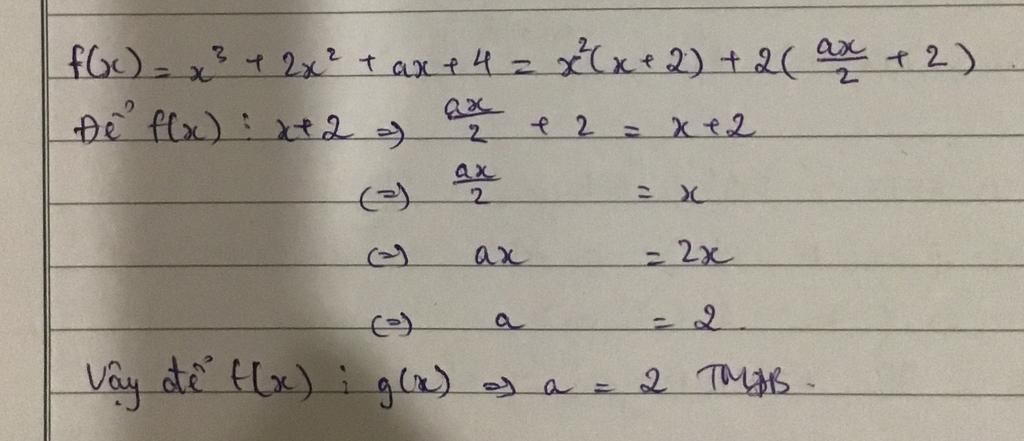 f(x) = x³ + 2x² + ax + 4 = x²(x + 2) + 2(ax/2 + 2)
Để f(x) ⋮ x + 2 => ax/2 + 2 = x + 2
(=) ax/2 = x
(=) ax = 2x
(=) a = 2.
Vậy để f(x) ⋮ g(x) => a = 2 TMĐB.